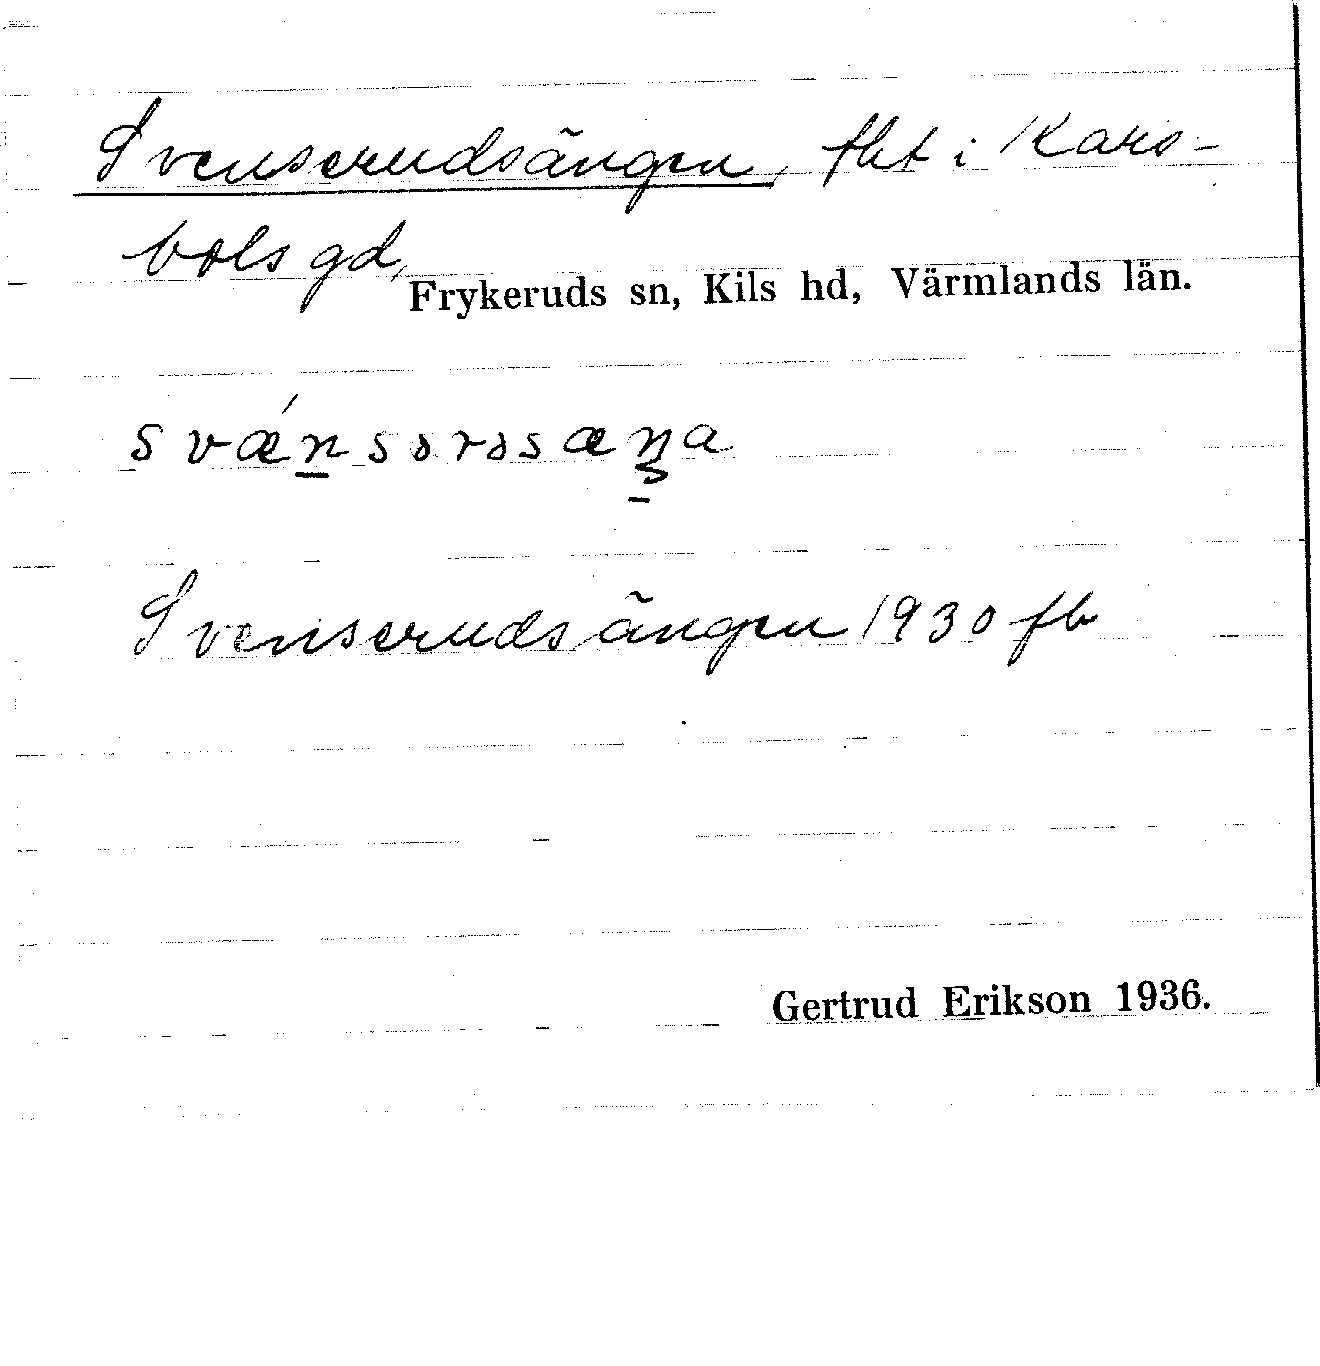 Svenserudsängen, fht i Kars-
bols gd,
Frykeruds sn, Kils hd, Värmlands län.
svǽn̲sərəsæŋ̲a
Svenserudsängen 1930 fb
Gertrud Erikson 1936.